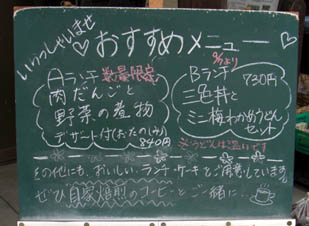 いらっしゃいませ
おすすめメニュー
Aランチ 数量限定
肉だんごと
野菜の煮物
デザート付(おたのしみ)
840円
より
Bランチ
730円
三色丼と
ミニ梅わかめうどん
セット
※うどんは温いです
その他にも、おいしいランチ・ケーキとご用意しています。
ぜひ自家焙煎のコーヒーとご一緒に…